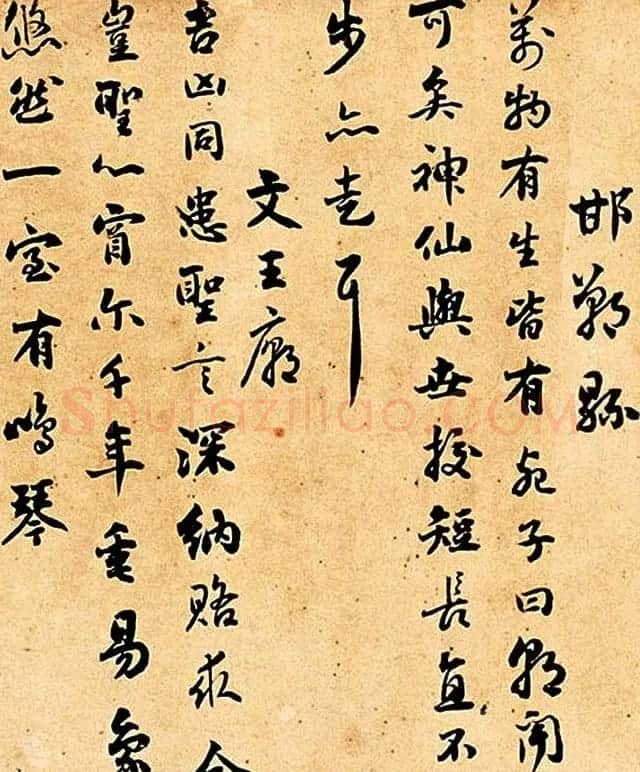 邯鄲縣
萬物有生皆有死子曰朝聞
可矣神仙與世挍短長直不
步亦走耳
文王廟
吉凶同患聖言深納賂求
豈聖心尔千年重易象
悠然一室有鳴琴
Shufaziliao.COM